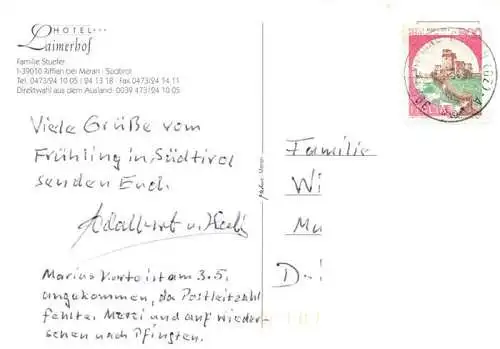 HOTEL***
Laimerhof
Familie Stuefer
I-39010 Riffian bei Meran · Südtirol
Tel. 0473/94 10 05 / 24 13 18 Fax 0473/24 14 11
Direktwahl aus dem Ausland: 0039 473/94 10 05
Viele Grüße vom
Frühling in Südtirol
senden Euch
Adalbert u.
Marius Karte ist am 3.5.
angekommen, da Postleitzahl
fehlte. Merci und auf Wieder-
sehen nach Pfingsten.
Familie
Wi
Mu
D-